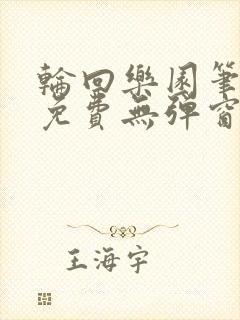 輪回樂園筆
免費無彈窗
王海宇